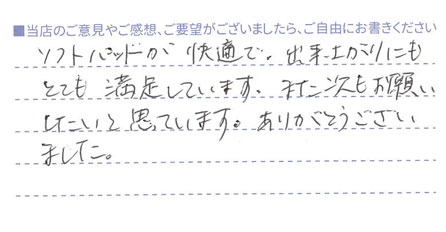 ■当店のご意見やご感想、ご要望がございましたら、ご自由にお書きください
ソフトパッドが快適で。出来上がりにも
とても満足しています。また次もお願い
したいと思ています。ありがとうござい
ました。